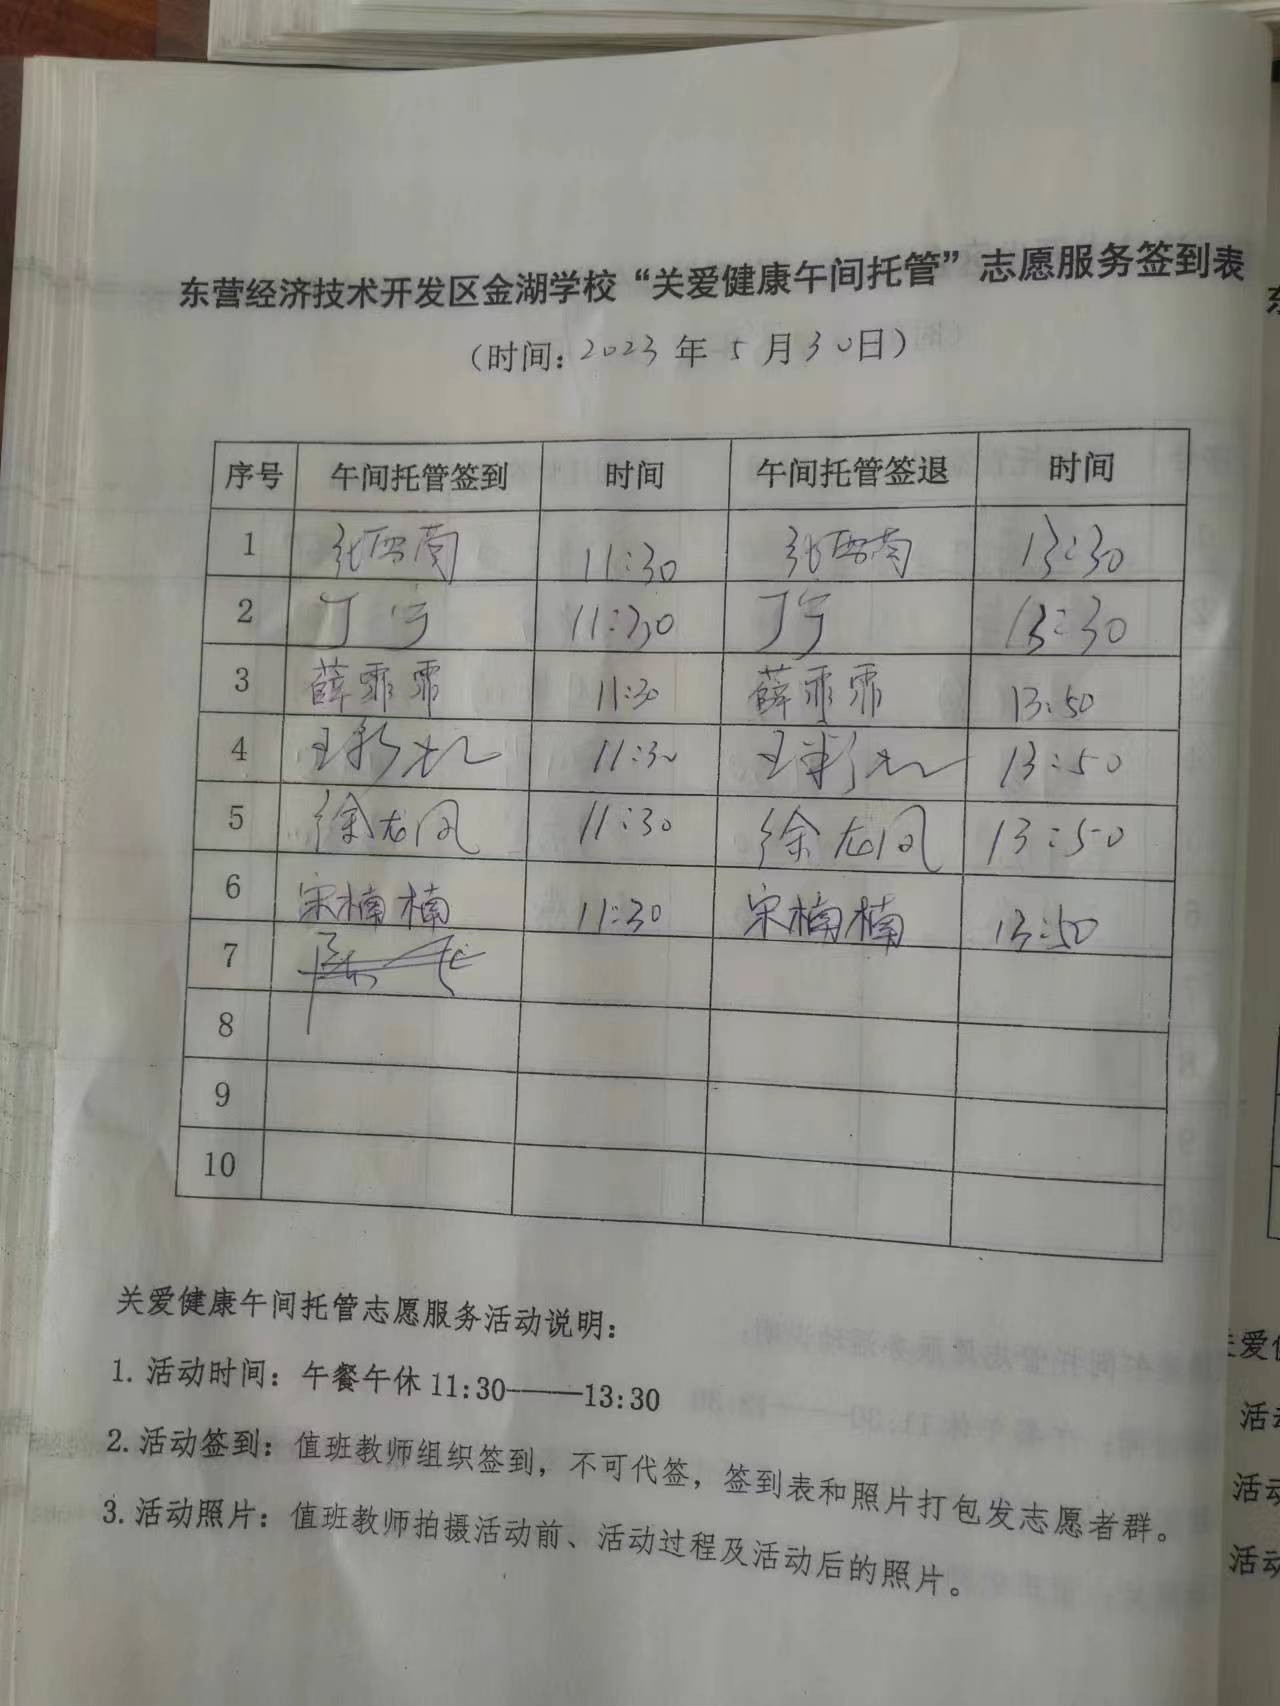 东营经济技术开发区金湖学校“关爱健康午间托管”志愿服务签到表
（时间：2023年5月30日）
序号 午间托管签到 时间 午间托管签退 时间
1 张西南 11:30 张西南 13:30
2 丁宁 11:30 丁宁 13:30
3 薛乖乖 11:30 薛乖乖 13:50
4 11:30 13:50
5 徐龙凤 11:30 徐龙凤 13:50
6 宋楠楠 11:30 宋楠楠 13:50
7
8
9
10
关爱健康午间托管志愿服务活动说明：
1. 活动时间：午餐午休 11:30——13:30
2. 活动签到：值班教师组织签到，不可代签，签到表和照片打包发志愿者群。
3. 活动照片：值班教师拍摄活动前、活动过程及活动后的照片。